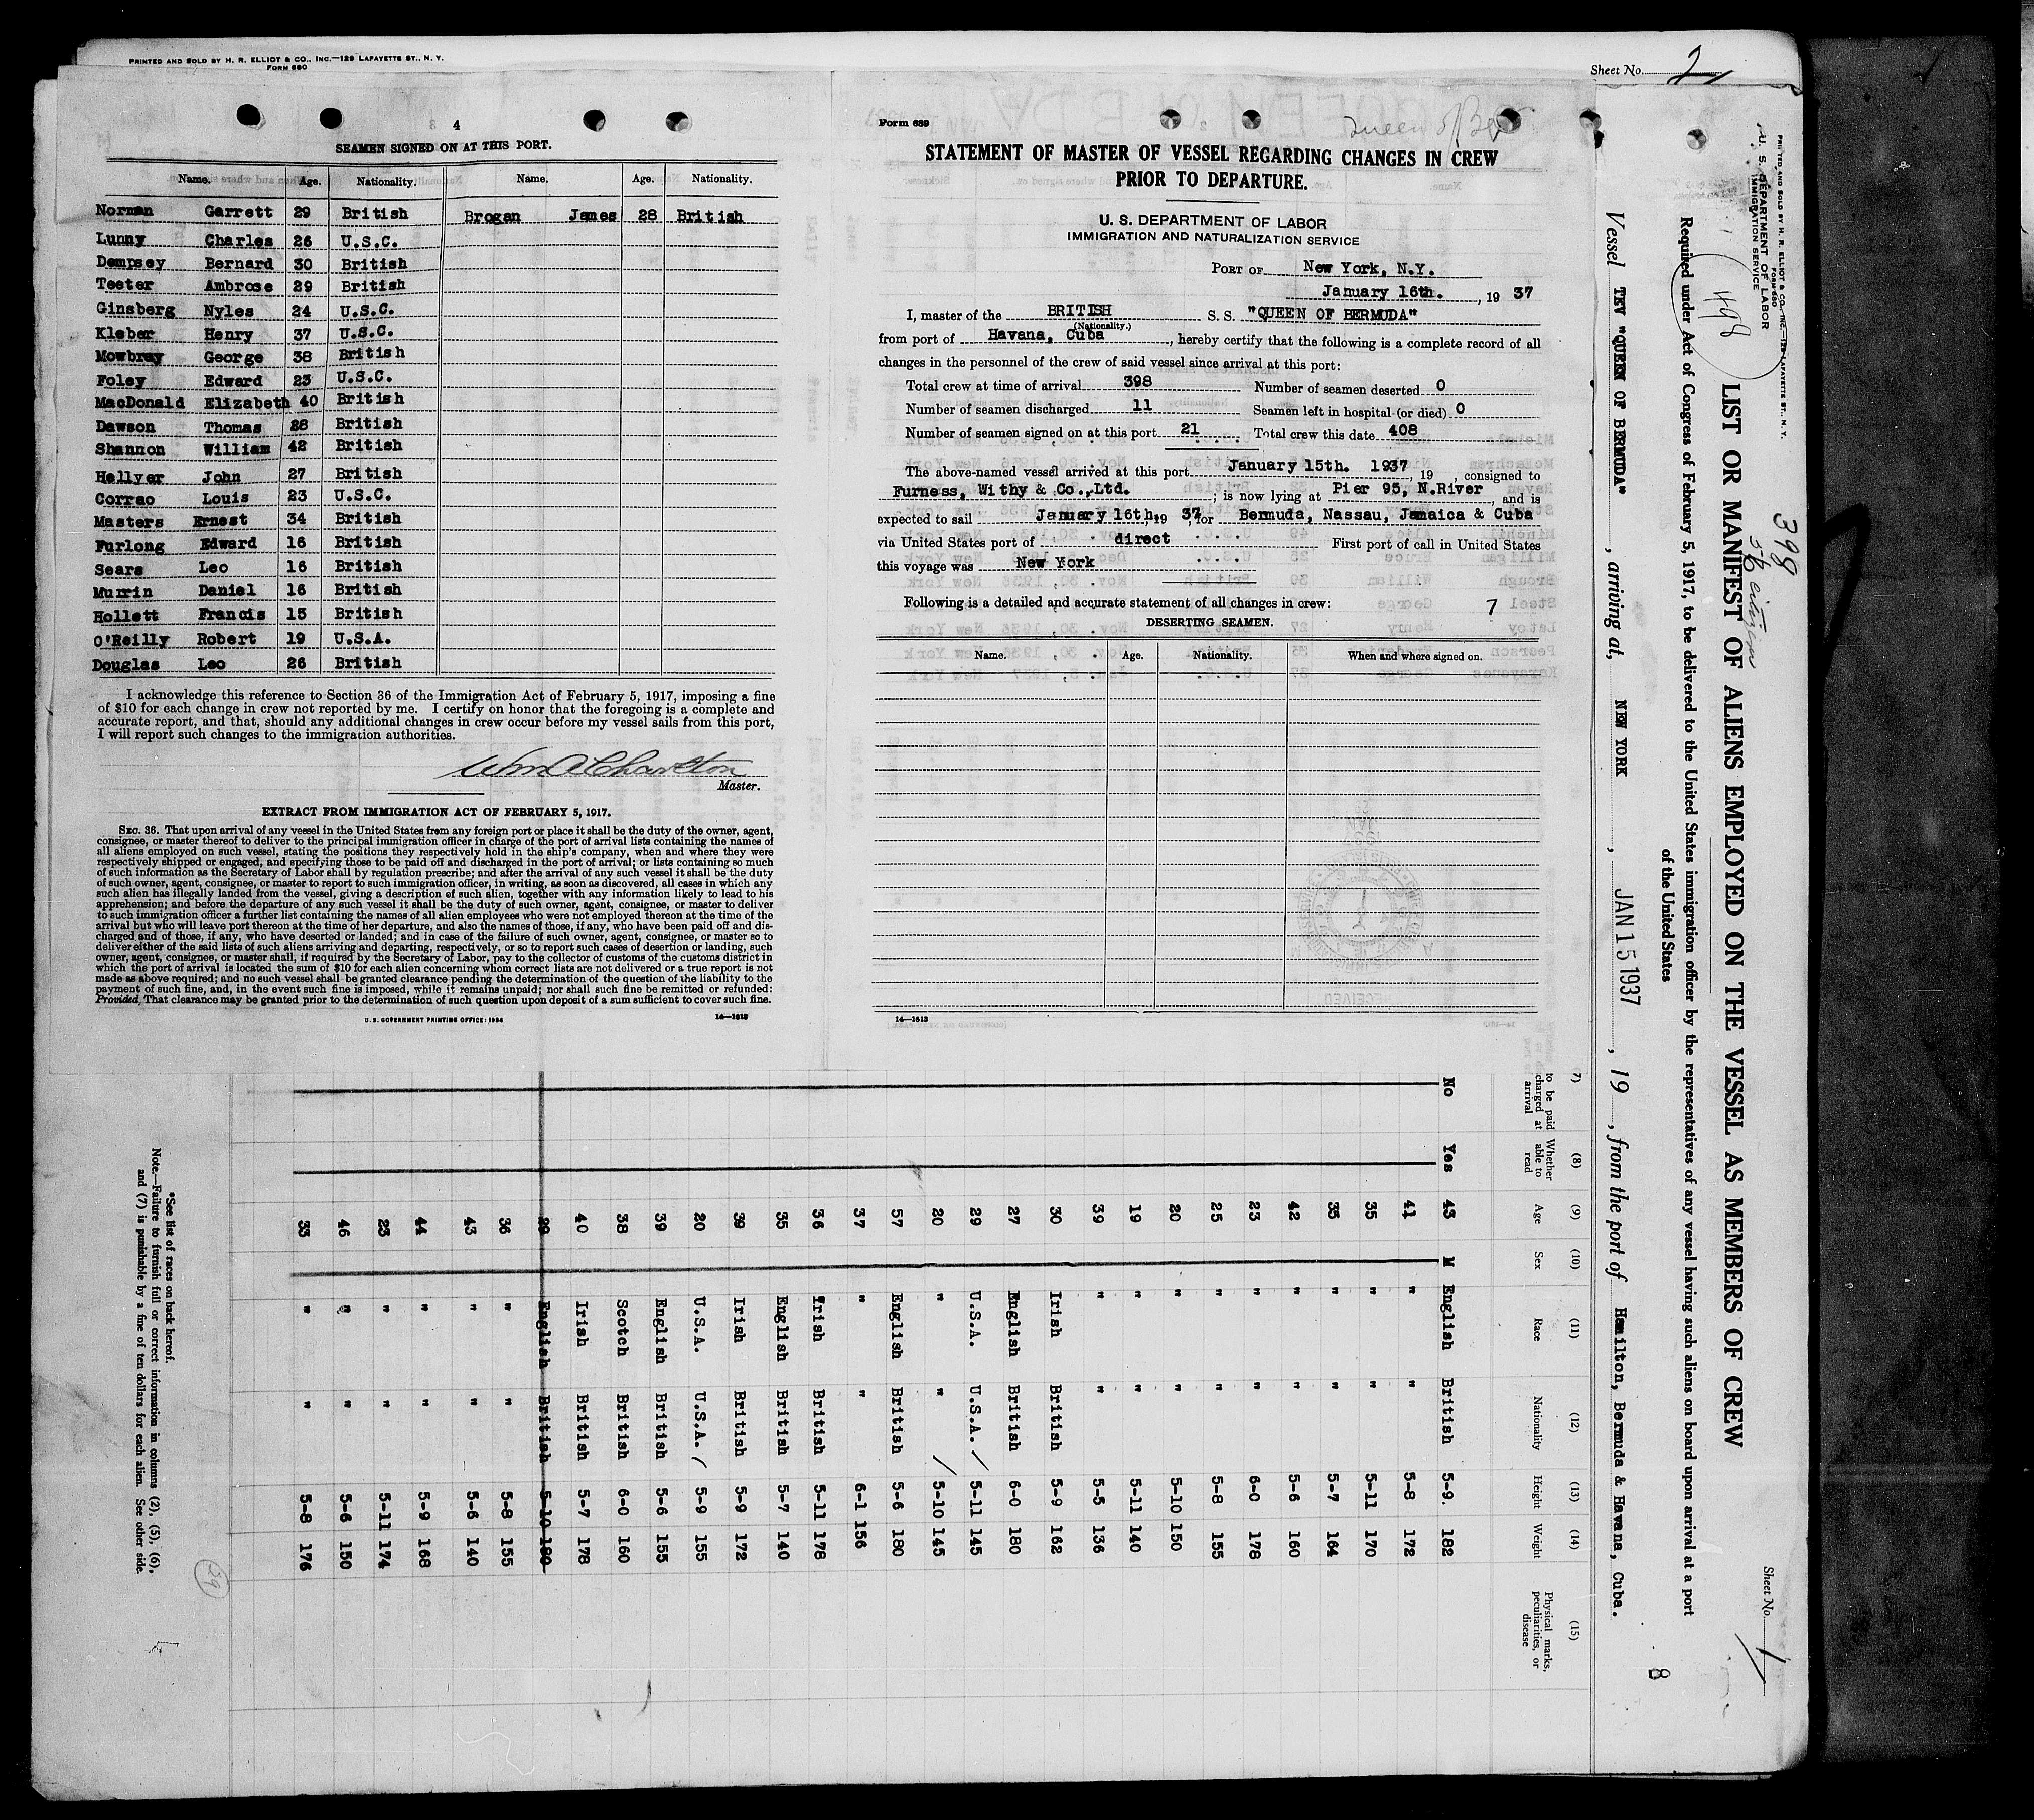 PRINTED AND SOLD BY H. R. ELLIOT & CO., INC.—129 LAFAYETTE ST., N. Y.
FORM 680
Sheet No. 2
4
SEAMEN SIGNED ON AT THIS PORT.
Name. Age. Nationality. Name. Age. Nationality.
Norman Garrett 29 British Brogan James 28 British
Lunny Charles 26 U.S.C.
Dempsey Bernard 30 British
Teeter Ambrose 29 British
Ginsberg Nyles 24 U.S.C.
Kleber Henry 37 U.S.C.
Mowbray George 38 British
Foley Edward 23 U.S.C.
MacDonald Elizabeth 40 British
Dawson Thomas 28 British
Shannon William 42 British
Hellyer John 27 British
Corrao Louis 23 U.S.C.
Masters Ernest 34 British
Furlong Edward 16 British
Sears Leo 16 British
Murrin Daniel 16 British
Hollett Francis 15 British
O'Reilly Robert 19 U.S.A.
Douglas Leo 26 British
I acknowledge this reference to Section 36 of the Immigration Act of February 5, 1917, imposing a fine
of $10 for each change in crew not reported by me. I certify on honor that the foregoing is a complete and
accurate report, and that, should any additional changes in crew occur before my vessel sails from this port,
I will report such changes to the immigration authorities.
Wm A Charlton
Master.
EXTRACT FROM IMMIGRATION ACT OF FEBRUARY 5, 1917.
SEC. 36. That upon arrival of any vessel in the United States from any foreign port or place it shall be the duty of the owner, agent,
consignee, or master thereof to deliver to the principal immigration officer in charge of the port of arrival lists containing the names of
all aliens employed on such vessel, stating the positions they respectively hold in the ship's company, when and where they were
respectively shipped or engaged, and specifying those to be paid off and discharged in the port of arrival; or lists containing so much
of such information as the Secretary of Labor shall by regulation prescribe; and after the arrival of any such vessel it shall be the duty
of such owner, agent, consignee, or master to report to such immigration officer, in writing, as soon as discovered, all cases in which any
such alien has illegally landed from the vessel, giving a description of such alien, together with any information likely to lead to his
apprehension; and before the departure of any such vessel it shall be the duty of such owner, agent, consignee, or master to deliver
to such immigration officer a further list containing the names of all alien employees who were not employed thereon at the time of the
arrival but who will leave port thereon at the time of her departure, and also the names of those, if any, who have been paid off and dis-
charged and of those, if any, who have deserted or landed; and in case of the failure of such owner, agent, consignee, or master so to
deliver either of the said lists of such aliens arriving and departing, respectively, or so to report such cases of desertion or landing, such
owner, agent, consignee, or master shall, if required by the Secretary of Labor, pay to the collector of customs of the customs district in
which the port of arrival is located the sum of $10 for each alien concerning whom correct lists are not delivered or a true report is not
made as above required; and no such vessel shall be granted clearance pending the determination of the question of the liability to the
payment of such fine, and, in the event such fine is imposed, while it remains unpaid; nor shall such fine be remitted or refunded:
Provided, That clearance may be granted prior to the determination of such question upon deposit of a sum sufficient to cover such fine.
U. S. GOVERNMENT PRINTING OFFICE: 1934 14—1613
Form 689
STATEMENT OF MASTER OF VESSEL REGARDING CHANGES IN CREW
PRIOR TO DEPARTURE.
U. S. DEPARTMENT OF LABOR
IMMIGRATION AND NATURALIZATION SERVICE
PORT OF New York, N.Y.
January 16th. , 19 37
I, master of the BRITISH S. S. "QUEEN OF BERMUDA"
(Nationality.)
from port of Havana, Cuba , hereby certify that the following is a complete record of all
changes in the personnel of the crew of said vessel since arrival at this port:
Total crew at time of arrival 398 Number of seamen deserted 0
Number of seamen discharged 11 Seamen left in hospital (or died) 0
Number of seamen signed on at this port 21 Total crew this date 408
The above-named vessel arrived at this port January 15th. 1937 , 19 , consigned to
Furness, Withy & Co.,Ltd. ; is now lying at Pier 95, N.River , and is
expected to sail January 16th, 19 37, for Bermuda, Nassau, Jamaica & Cuba
via United States port of direct First port of call in United States
this voyage was New York
Following is a detailed and accurate statement of all changes in crew: 7
DESERTING SEAMEN.
Name. Age. Nationality. When and where signed on.
14—1613
Sheet No. 1
PRINTED AND SOLD BY H. R. ELLIOT & CO., INC.—129 LAFAYETTE ST., N. Y.
FORM 680
U. S. DEPARTMENT OF LABOR
IMMIGRATION SERVICE
498
398
56 citizen
LIST OR MANIFEST OF ALIENS EMPLOYED ON THE VESSEL AS MEMBERS OF CREW
Required under Act of Congress of February 5, 1917, to be delivered to the United States immigration officer by the representatives of any vessel having such aliens on board upon arrival at a port
of the United States
8
Vessel TEV "QUEEN OF BERMUDA" , arriving at, NEW YORK , JAN 15 1937 , 19 , from the port of Hamilton, Bermuda & Havana, Cuba.
7) (8) (9) (10) (11) (12) (13) (14) (15)
to be paid charged at arrival Whether able to read Age Sex Race Nationality Height Weight Physical marks, peculiarities, or disease
No Yes 43 M English British 5-9. 182
41 " " 5-8 172
35 " " 5-11 170
35 " " 5-7 164
42 " " 5-6 160
23 " " 6-0 178
25 " " 5-8 155
20 " " 5-10 150
19 " " 5-11 140
39 " " 5-5 136
30 Irish British 5-9 162
27 English British 6-0 180
29 U.S.A. U.S.A. 5-11 145
20 " " 5-10 145
57 English British 5-6 180
37 " " 6-1 156
36 Irish British 5-11 178
35 English British 5-7 140
39 Irish British 5-9 172
20 U.S.A. U.S.A. 5-9 155
39 English British 5-6 155
38 Scotch British 6-0 160
40 Irish British 5-7 178
29 English British 5-10 180
36 " " 5-8 155
43 " " 5-6 140
44 " " 5-9 168
23 " " 5-11 174
46 " " 5-6 150
33 " " 5-8 176
*See list of races on back hereof.
Note—Failure to furnish full or correct information in columns (2), (5), (6),
and (7) is punishable by a fine of ten dollars for each alien. See other side.
29